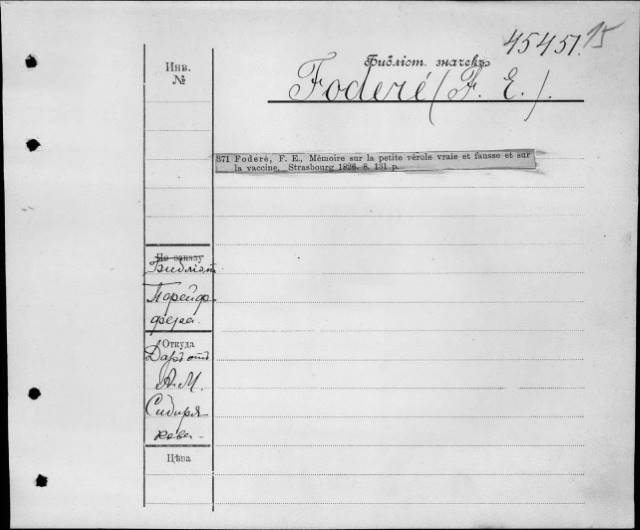 45451. 15
Инв.
№
Библіот. значекъ
Foderé (F. E.).
871 Foderé, F. E., Mémoire sur la petite vérole vraie et fausse et sur
la vaccine. Strasbourg 1826. 8. 131 p.
По заказу
Библіот
Порейф
фера.
Откуда
Даръ отъ
А. М.
Сибиря
кова.
Цѣна